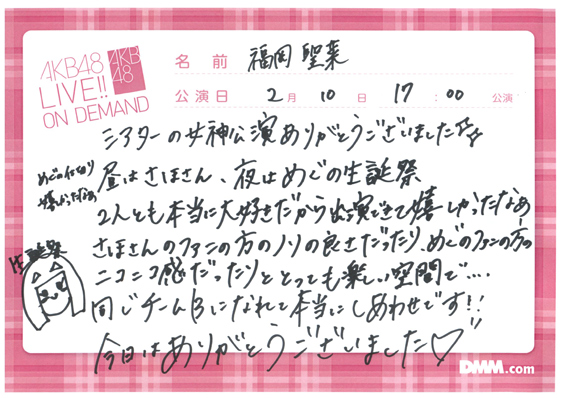 AKB48
LIVE!!
ON DEMAND
AKB
48
名前 福岡聖菜
公演日 2月10日 17:00 公演
シアターの女神公演ありがとうございました
昼はさほさん、夜はめぐの生誕祭
2人とも本当に大好きだから出演できて嬉しかったなあ
さほさんのファンの方のノリの良さだったり、めぐのファンの方の
ニコニコ感だったりととっても楽しい空間で....
同じチームBになれて本当にしあわせです!!
今日はありがとうございました♡
嬉しかったなぁ
生誕祭
DMM.com